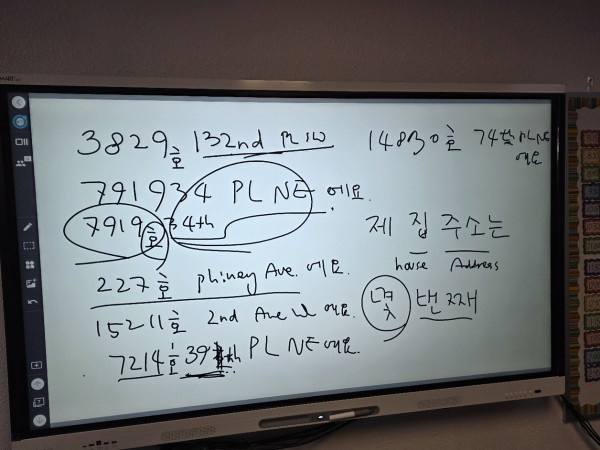 3829호 132nd PL SW
14830호 74th PL NE
에요
791934 PL NE 에요.
7919호 34th
제 집 주소는
house Address
227호 phinney Ave. 에요.
몇 번째
15211호 2nd Ave W 에요.
7214호 39th PL NE 에요.